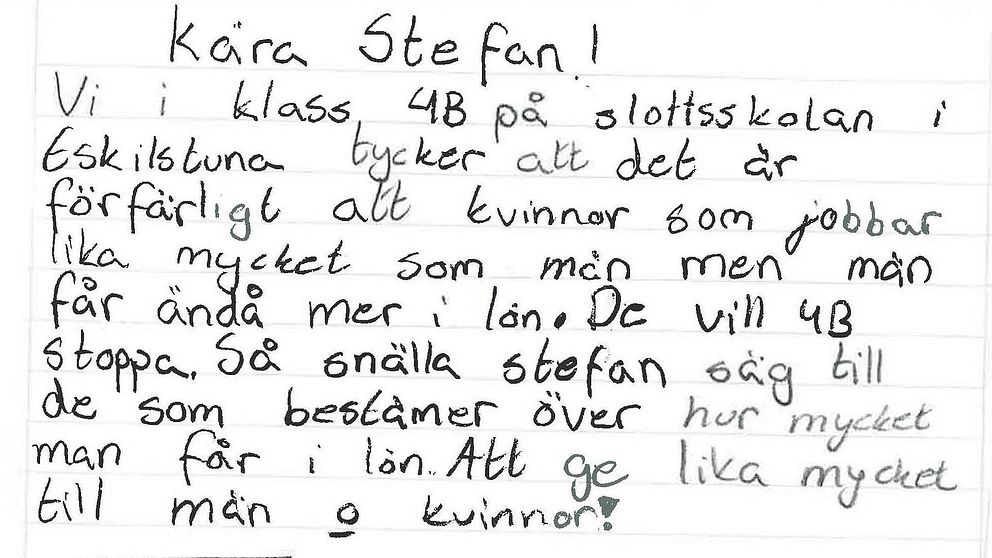 Kära Stefan!
Vi i klass 4B på slottsskolan i
Eskilstuna tycker att det är
förfärligt att kvinnor som jobbar
lika mycket som män men män
får ändå mer i lön. De vill 4B
stoppa. Så snälla stefan säg till
de som bestämer över hur mycket
man får i lön. Att ge lika mycket
till män o kvinnor!